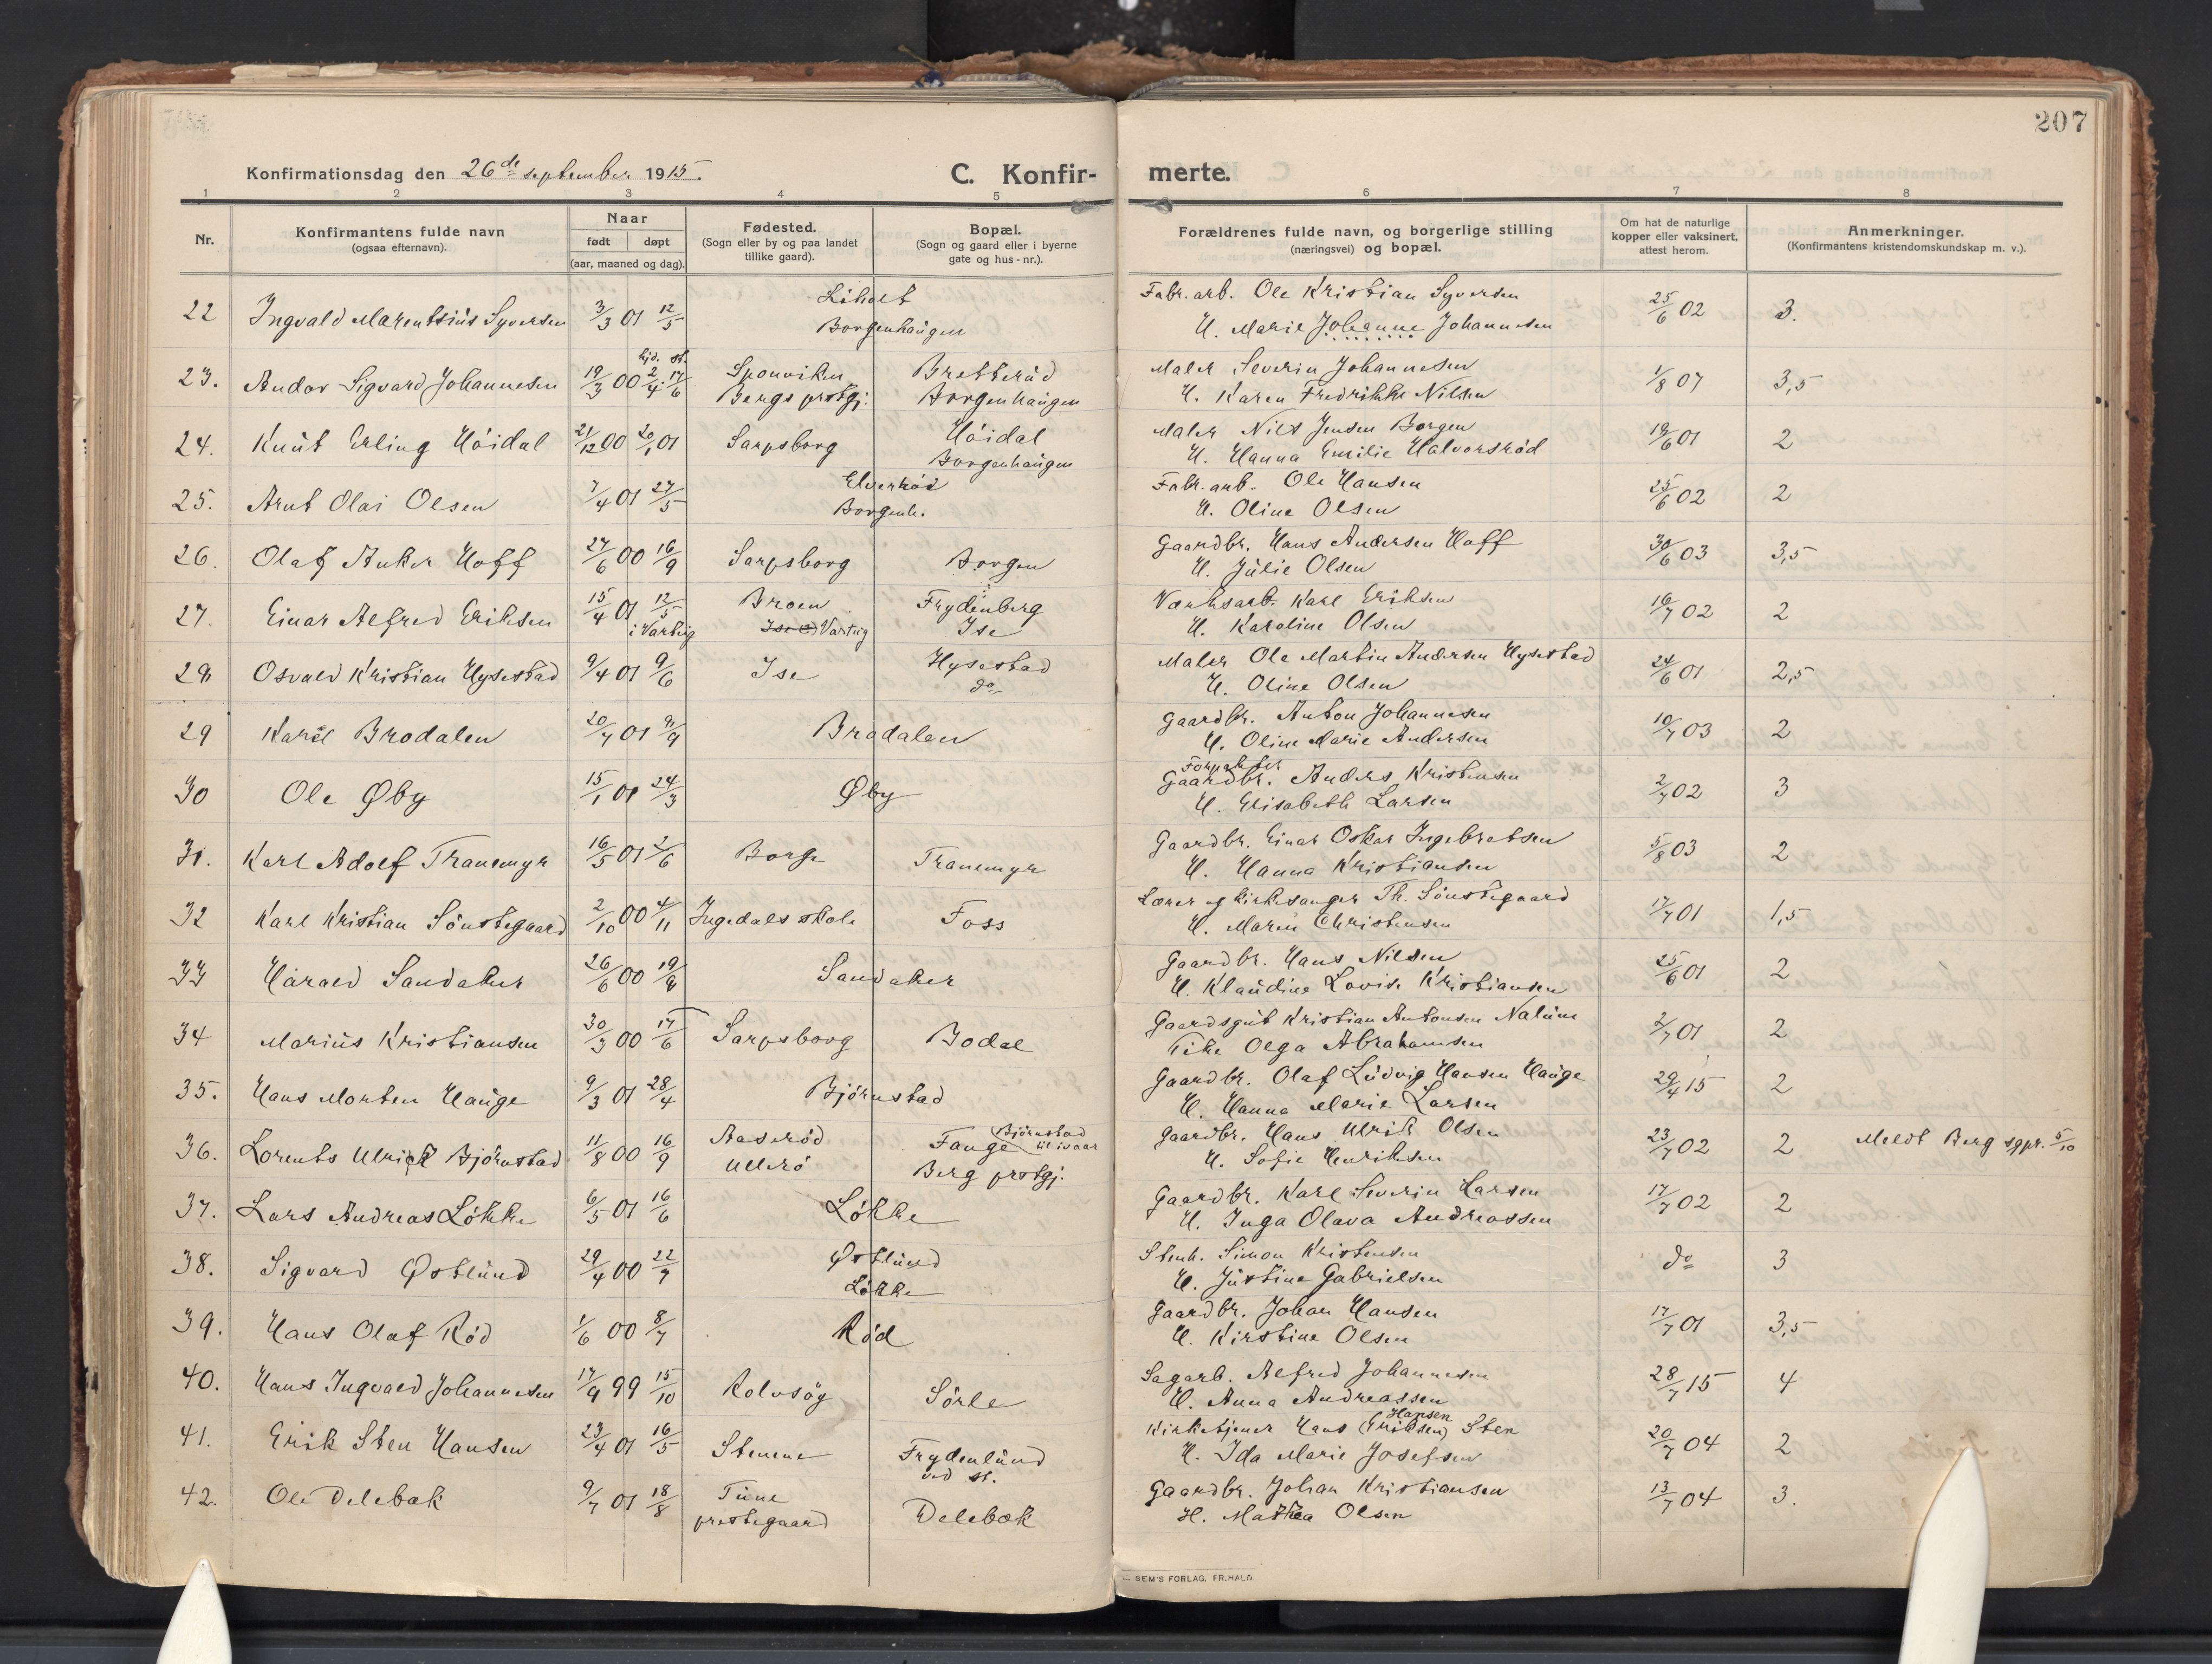 207
Konfirmationsdag den 26de september 1915.
C. Konfir-
merte.
1 2 3 4 5 6 7 8
Nr.
Konfirmantens fulde navn
(ogsaa efternavn).
Naar
født døpt
(aar, maaned og dag).
Fødested.
(Sogn eller by og paa landet
tillike gaard).
Bopæl.
(Sogn og gaard eller i byerne
gate og hus-nr.).
Forældrenes fulde navn, og borgerlige stilling
(næringsvei) og bopæl.
Om hat de naturlige
kopper eller vaksinert,
attest herom.
Anmerkninger.
(Konfirmantens kristendomskundskap m. v.).
22 Ingvald Marentsius Syversen 3/3 01 12/5 Liholt Borgenhaugen Fabr. arb. Ole Kristian Syversen 25/6 02 3.
H. Marie Johanne Johannesen
23. Andor Sigvard Johannesen 19/3 00 hjd. 2/4 st. 17/6 Sponviken Bretterud Maler Severin Johannesen 1/8 07 3,5
Bergs prstgj. Borgenhaugen H. Karen Fredrikke Nilsen
24. Knut Erling Höidal 21/12 00 20/1 01 Sarpsborg Höidal Maler Nils Jensen Borgen 19/6 01 2
Borgenhaugen H. Hanna Emilie Halvorsröd
25. Arnt Olai Olsen 7/4 01 27/5 Elverhöi Fabr. arb. Ole Hansen 25/6 02 2
Borgenh. H. Oline Olsen
26. Olaf Anker Hoff 27/6 00 16/9 Sarpsborg Borgen Gaardbr. Hans Andersen Hoff 30/6 03 3,5
H. Julie Olsen
27. Einar Alfred Eriksen 15/4 01 12/5 Broen Frydenberg Værksarb. Karl Eriksen 16/7 02 2
i Varteig Varteig Ise H. Karoline Olsen
28 Osvald Kristian Hysestad 9/4 01 9/6 Ise Hysestad Maler Ole Martin Andersen Hysestad 24/6 01 2,5
do H. Oline Olsen
29 Karl Brodalen 20/7 01 /9 Brodalen Gaardbr. Anton Johannesen 10/7 03 2
H. Oline Marie Andersen
30 Ole Øby 15/1 01 24/3 Øby Forpakter
Gaardbr. Anders Kristensen 2/7 02 3
H. Elisabeth Larsen
31. Karl Adolf Tranemyr 16/5 01 2/6 Borge Tranemyr Gaardbr. Einar Oskar Ingebretsen 5/8 03 2
H. Hanna Kristiansen
32 Karl Kristian Sönstegaard 2/10 00 4/11 Ingedals skole Foss Lærer og kirkesanger Th. Sönstegaard 17/7 01 1,5
H. Maren Christensen
33 Harald Sandaker 26/6 00 19/8 Sandaker Gaardbr. Hans Nilsen 25/6 01 2
H. Klaudine Lovise Kristiansen
34 Marius Kristiansen 30/3 00 17/6 Sarpsborg Bodal Gaardsgut Kristian Antonsen Nalum 2/7 01 2
Pike Olga Abrahamsen
35. Hans Morten Hauge 9/3 01 28/4 Björnstad Gaardbr. Olaf Ludvig Hansen Hauge 29/4 15 2
H. Hanna Marie Larsen
36. Lorents Ulrik Björnstad 11/8 00 16/9 Aaseröd Fange Björnstad til ivaar Gaardbr. Hans Ulrik Olsen 23/7 02 2 Meldt Berg sgpr. 5/10
Ullerö Berg prstgj. H. Sofie Henriksen
37. Lars Andreas Lökke 6/5 01 16/6 Lökke Gaardbr. Karl Severin Larsen 17/7 02 2
H. Inga Olava Andreassen
38. Sigvard Østlund 29/4 00 22/7 Østlund Stenh. Simon Kristensen do 3
Lökke H. Justine Gabrielsen
39. Hans Olaf Röd 1/6 00 8/7 Röd Gaardbr. Johan Hansen 17/7 01 3,5
H. Kirstine Olsen
40. Hans Ingvald Johannesen 17/9 99 15/10 Rolvsöy Sörle Sagarb. Alfred Johannesen 28/7 15 4
H. Anna Andreassen
41. Erik Sten Hansen 23/4 01 16/5 Stenene Frydenlund Kirketjener Hans (Eriksen) Hansen Sten 20/7 04 2
ved st. H. Ida Marie Josefsen
42. Ole Delebæk 9/7 01 18/8 Tune Delebæk Gaardbr. Johan Kristiansen 13/7 04 3.
prestegaard H. Mathea Olsen
SEM'S FORLAG. FR.HALD.